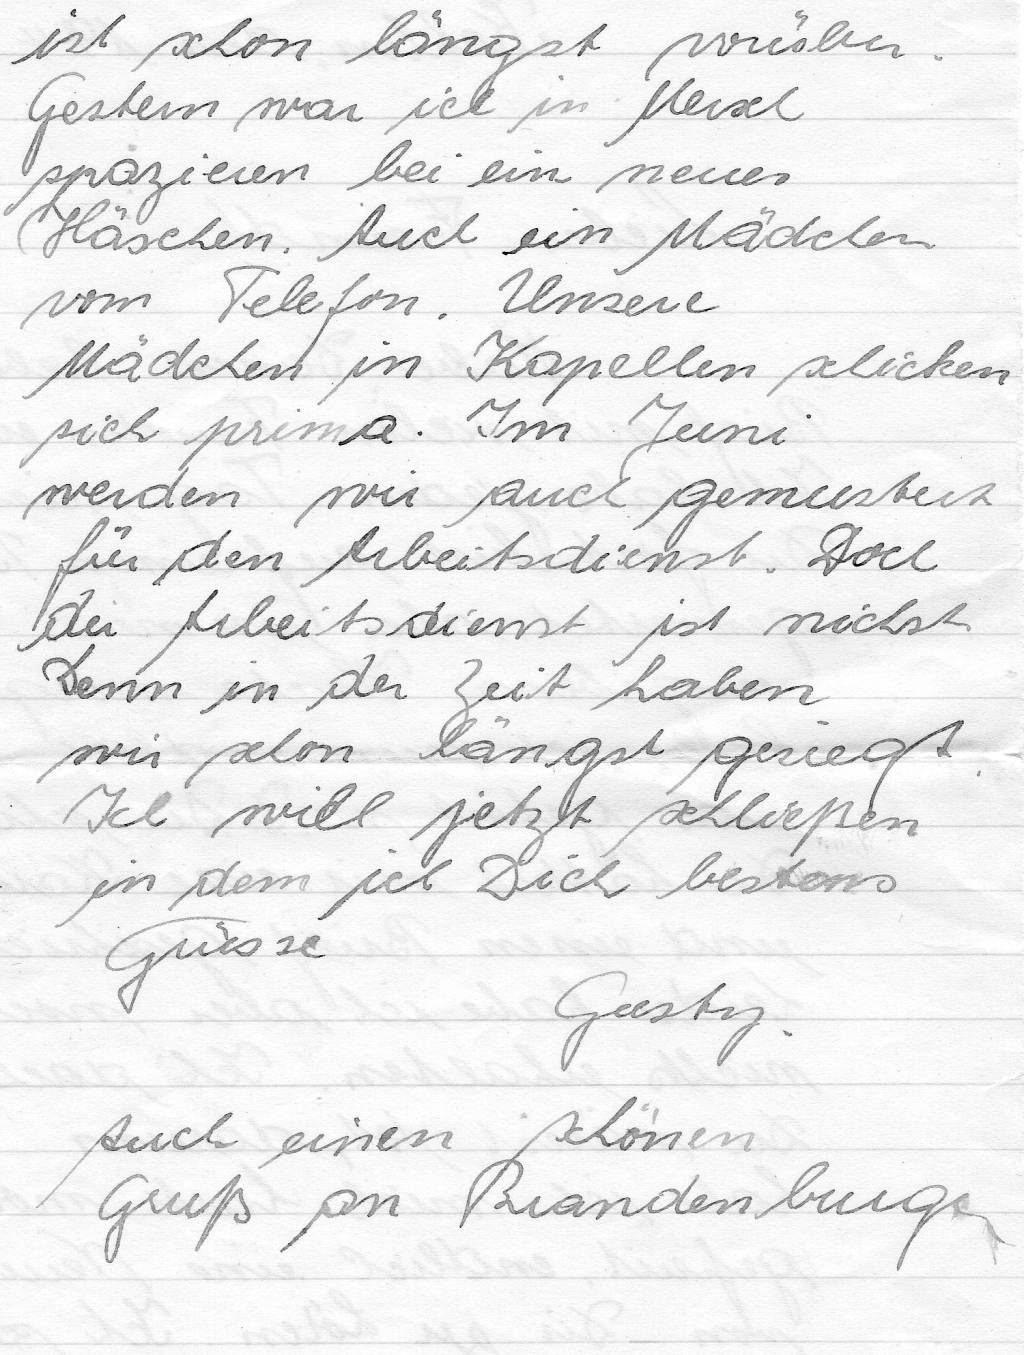 ist schon längst vorüber.
Gestern war ich in Mersch
spazieren bei ein neues
Häschen. Auch ein Mädchen
vom Telefon. Unsere
Mädchen in Kapellen schicken
sich prima. Im Juni
werden wir auch gemustert
für den Arbeitsdienst. Doch
der Arbeitsdienst ist nichst
Denn in der Zeit haben
wir schon längst gesiegt.
Ich will jetzt schließen
in dem ich Dich bestens
Grüsse
Gusty.
Auch einen schönen
Gruß an Brandenburger